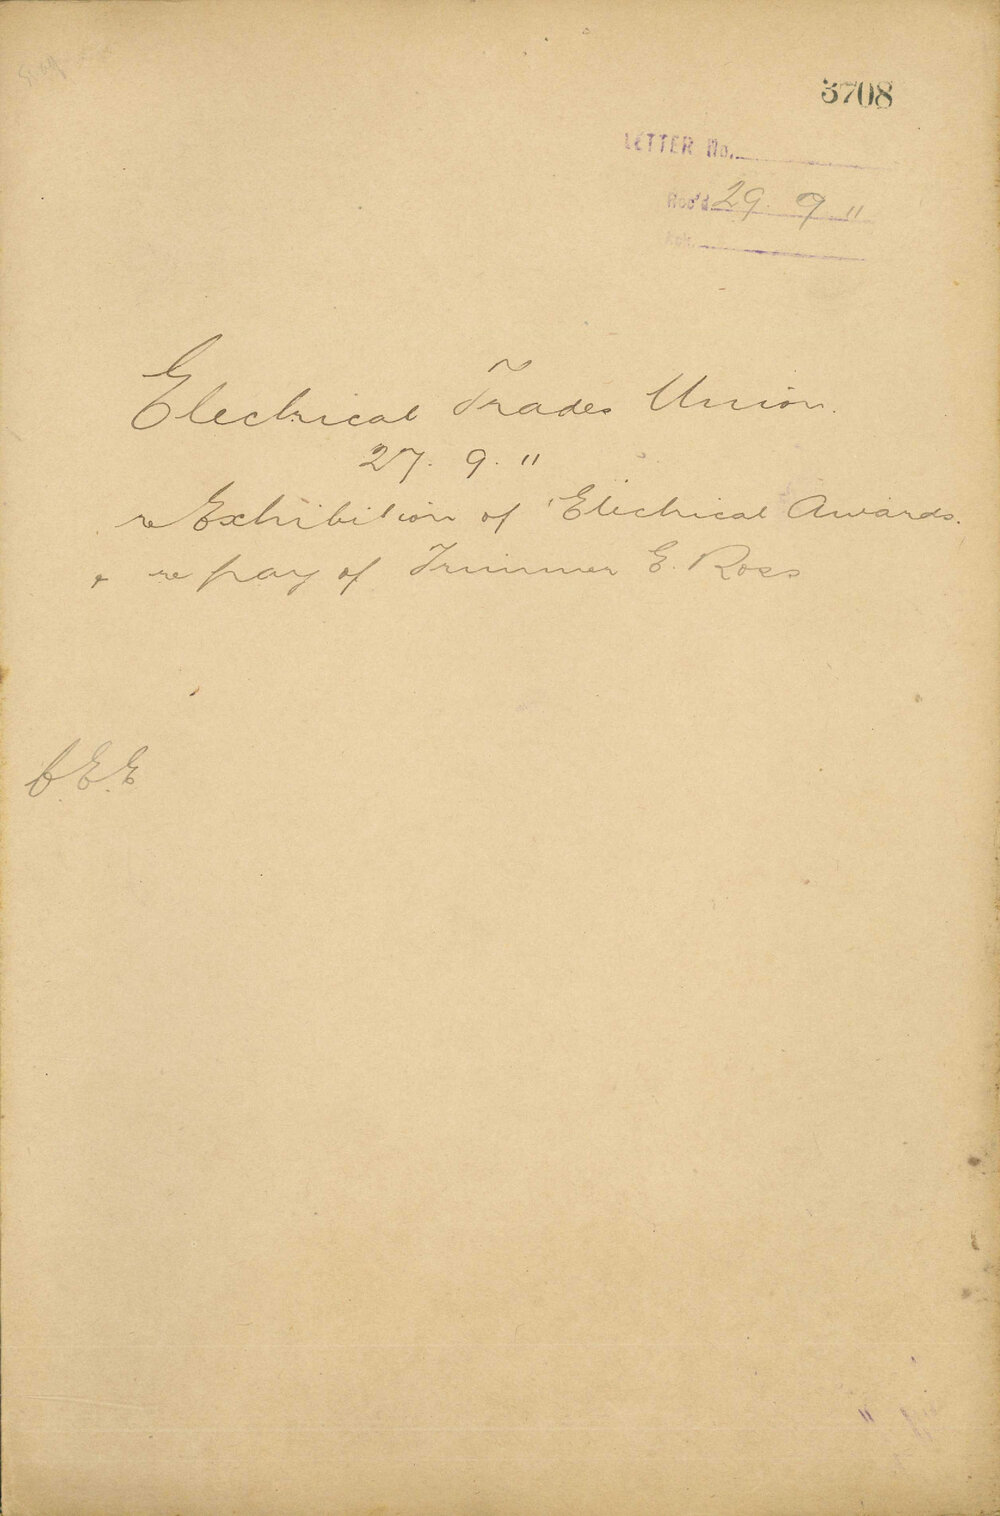 3708
LETTER No.
Rec'd 29. 9. 11
Ack.
Electrical Trades Union.
27. 9. 11
re Exhibition of Electrical Awards.
+ re pay of Trimmer E. Ross
C.E.E